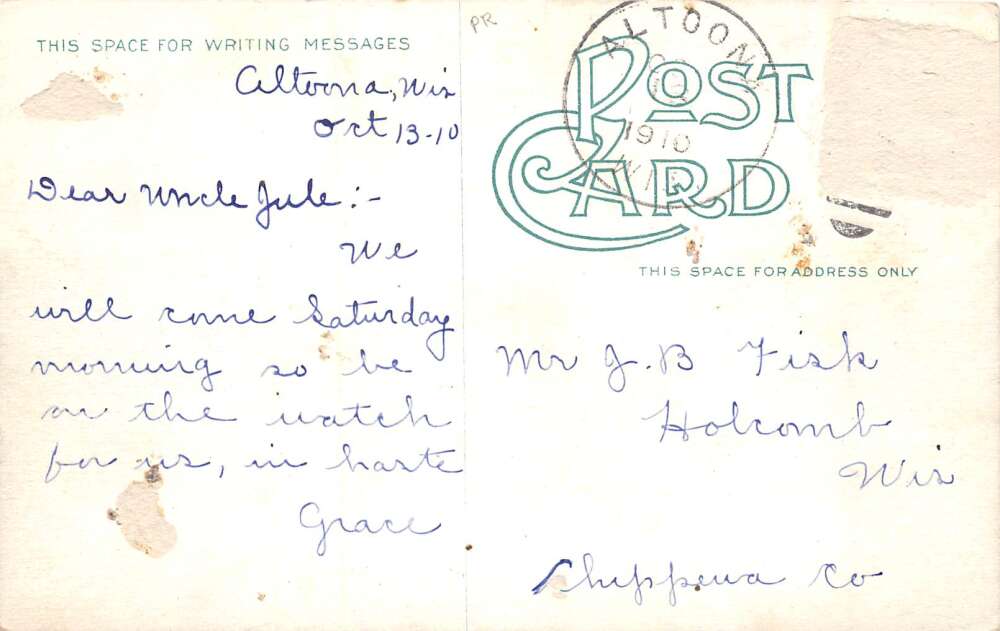 THIS SPACE FOR WRITING MESSAGES
Altoona, Wis
Oct 13-10
Dear Uncle Jule:-
We
will come Saturday
morning so be
on the watch
for us, in haste
Grace
PR
ALTOONA
OCT
1910
WIS
POST
CARD
THIS SPACE FOR ADDRESS ONLY
Mr J. B Fisk
Holcomb
Wis
Chippewa Co